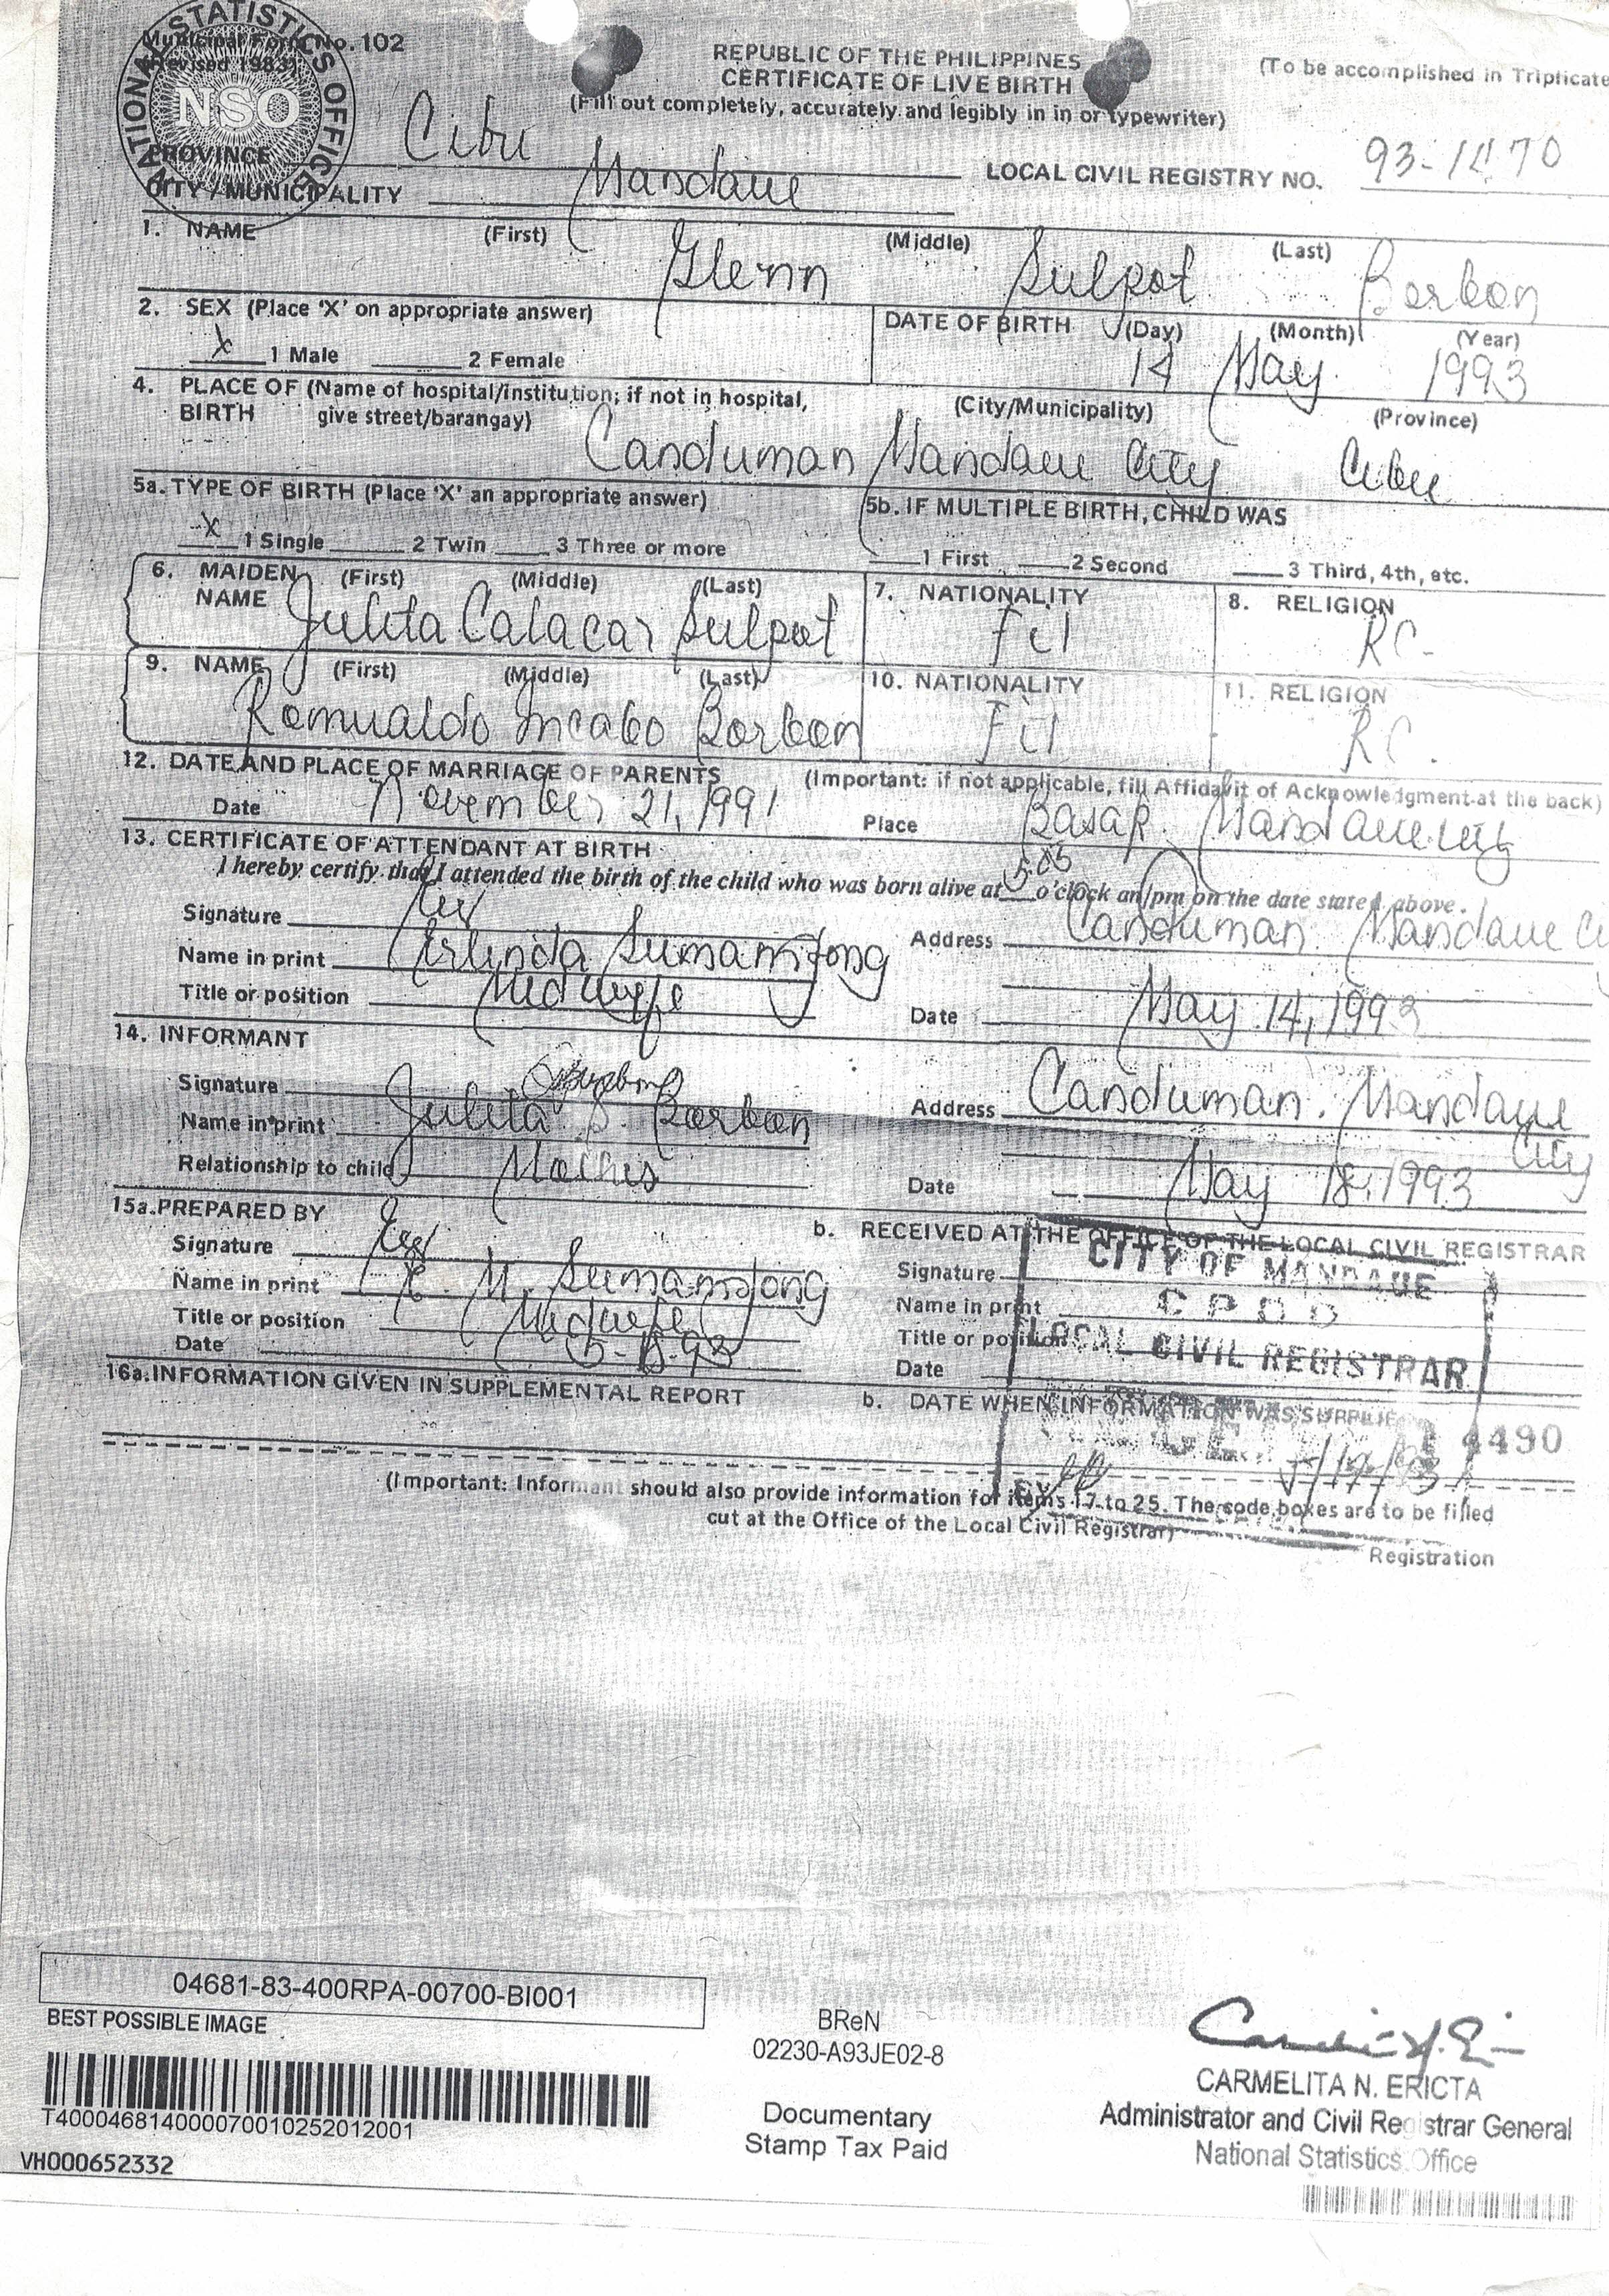 NATIONAL STATISTICS OFFICE
NSO
Municipal Form No. 102
(Revised 1983)
REPUBLIC OF THE PHILIPPINES
CERTIFICATE OF LIVE BIRTH
(Fill out completely, accurately and legibly in in or typewriter)
(To be accomplished in Triplicate
PROVINCE Cebu
CITY/MUNICIPALITY Mandaue
LOCAL CIVIL REGISTRY NO. 93-1470
1. NAME (First) (Middle) (Last)
Glenn Sulpot Borbon
2. SEX (Place 'X' on appropriate answer)
X 1 Male 2 Female
DATE OF BIRTH (Day) (Month) (Year)
14 May 1993
4. PLACE OF (Name of hospital/institution; if not in hospital,
BIRTH give street/barangay) (City/Municipality) (Province)
Canduman Mandaue City Cebu
5a. TYPE OF BIRTH (Place 'X' an appropriate answer)
X 1 Single 2 Twin 3 Three or more
5b. IF MULTIPLE BIRTH, CHILD WAS
1 First 2 Second 3 Third, 4th, etc.
6. MAIDEN NAME (First) (Middle) (Last)
Julita Calacar Sulpot
7. NATIONALITY
Fil
8. RELIGION
RC
9. NAME (First) (Middle) (Last)
Romualdo Borbon
10. NATIONALITY
Fil
11. RELIGION
RC.
12. DATE AND PLACE OF MARRIAGE OF PARENTS (Important: if not applicable, fill Affidavit of Acknowledgment at the back)
Date November 21, 1991 Place Basak Mandaue City
13. CERTIFICATE OF ATTENDANT AT BIRTH
I hereby certify that I attended the birth of the child who was born alive at 5:05 o'clock am/pm on the date stated above.
Signature
Name in print Erlinda Sumandong
Title or position Midwife
Address Canduman. Mandaue
Date May 14, 1993
14. INFORMANT
Signature
Name in print Julita S. Borbon
Relationship to child Mother
Address Canduman. Mandaue
City
Date May 18, 1993
15a. PREPARED BY
Signature
Name in print E. M. Sumandong
Title or position Midwife
Date
b. RECEIVED AT THE OFFICE OF THE LOCAL CIVIL REGISTRAR
Signature
Name in print
Title or position
Date
CITY OF MANDAUE
CPDO
LOCAL CIVIL REGISTRAR
16a. INFORMATION GIVEN IN SUPPLEMENTAL REPORT
b. DATE WHEN INFORMATION WAS SUPPLIE
4490
(Important: Informant should also provide information for items 17 to 25. The code boxes are to be filled
cut at the Office of the Local Civil Registrar)
Registration
04681-83-400RPA-00700-BI001
BEST POSSIBLE IMAGE
T400046814000070010252012001
VH000652332
BReN
02230-A93JE02-8
Documentary
Stamp Tax Paid
CARMELITA N. ERICTA
Administrator and Civil Registrar General
National Statistics Office